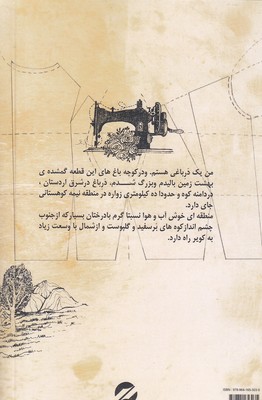 من یک درباغی هستم، ودرکوچه باغ های این قطعه گمشده ی
بهشت زمین بالیدم وبزرگ شدم، درباغ درشرق اردستان ،
دردامنه کوه و حدودا ده کیلومتری زواره در منطقه نیمه کوهستانی
جای دارد.
منطقه ای خوش آب و هوا نسبتا گرم بادرختان بسیارکه ازجنوب
چشم اندازکوه های برسفید و گلبوست و ازشمال با وسعت زیاد
به کویر راه دارد.